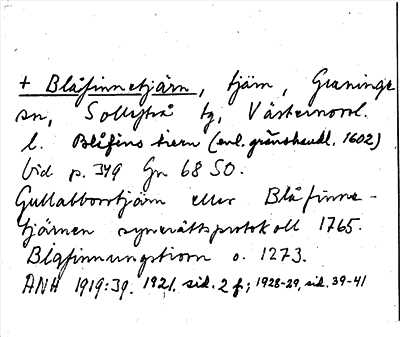 + Blåfinnetjärn, tjärn, Graninge
sn, Sollefteå tg, Västernorrl.
l. Blåfins tiern (enl. gränshandl. 1602)
vid p. 349 Gn 68 SO.
Gullabborrtjärn eller Blåfinne-
tjärnen synerättsprotokoll 1765.
Blafinnungstiorn o. 1273.
ANH 1919:39. 1921. sid. 2 f; 1928-29, sid. 39-41